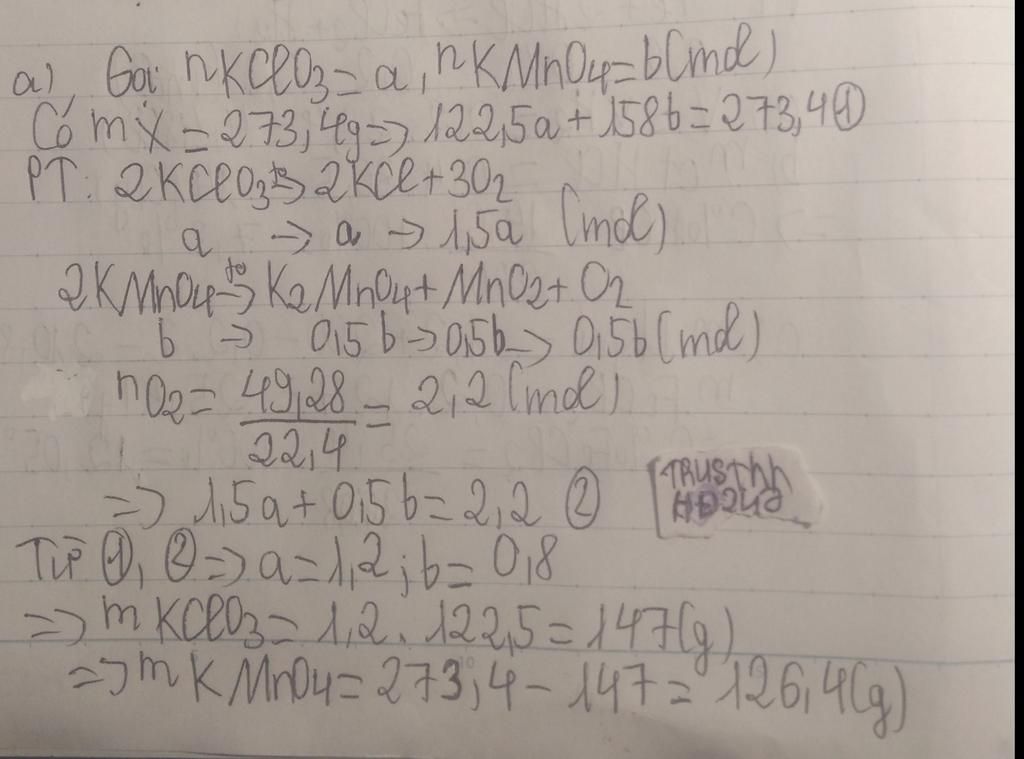 a), Gọi nKClO3 = a, nKMnO4 = b(mol)
Có mX = 273,4g => 122,5a + 158b = 273,4 ①
PT: 2KClO3 t°-> 2KCl + 3O2
a -> a -> 1,5a (mol)
2KMnO4 t°-> K2MnO4 + MnO2 + O2
b -> 0,5b -> 0,5b -> 0,5b (mol)
nO2 = 49,28/22,4 = 2,2 (mol)
=> 1,5a + 0,5b = 2,2 ②
TRUSThh
HD248
Từ ①, ② => a = 1,2; b = 0,8
=> mKClO3 = 1,2 . 122,5 = 147(g)
=> mKMnO4 = 273,4 - 147 = 126,4(g)